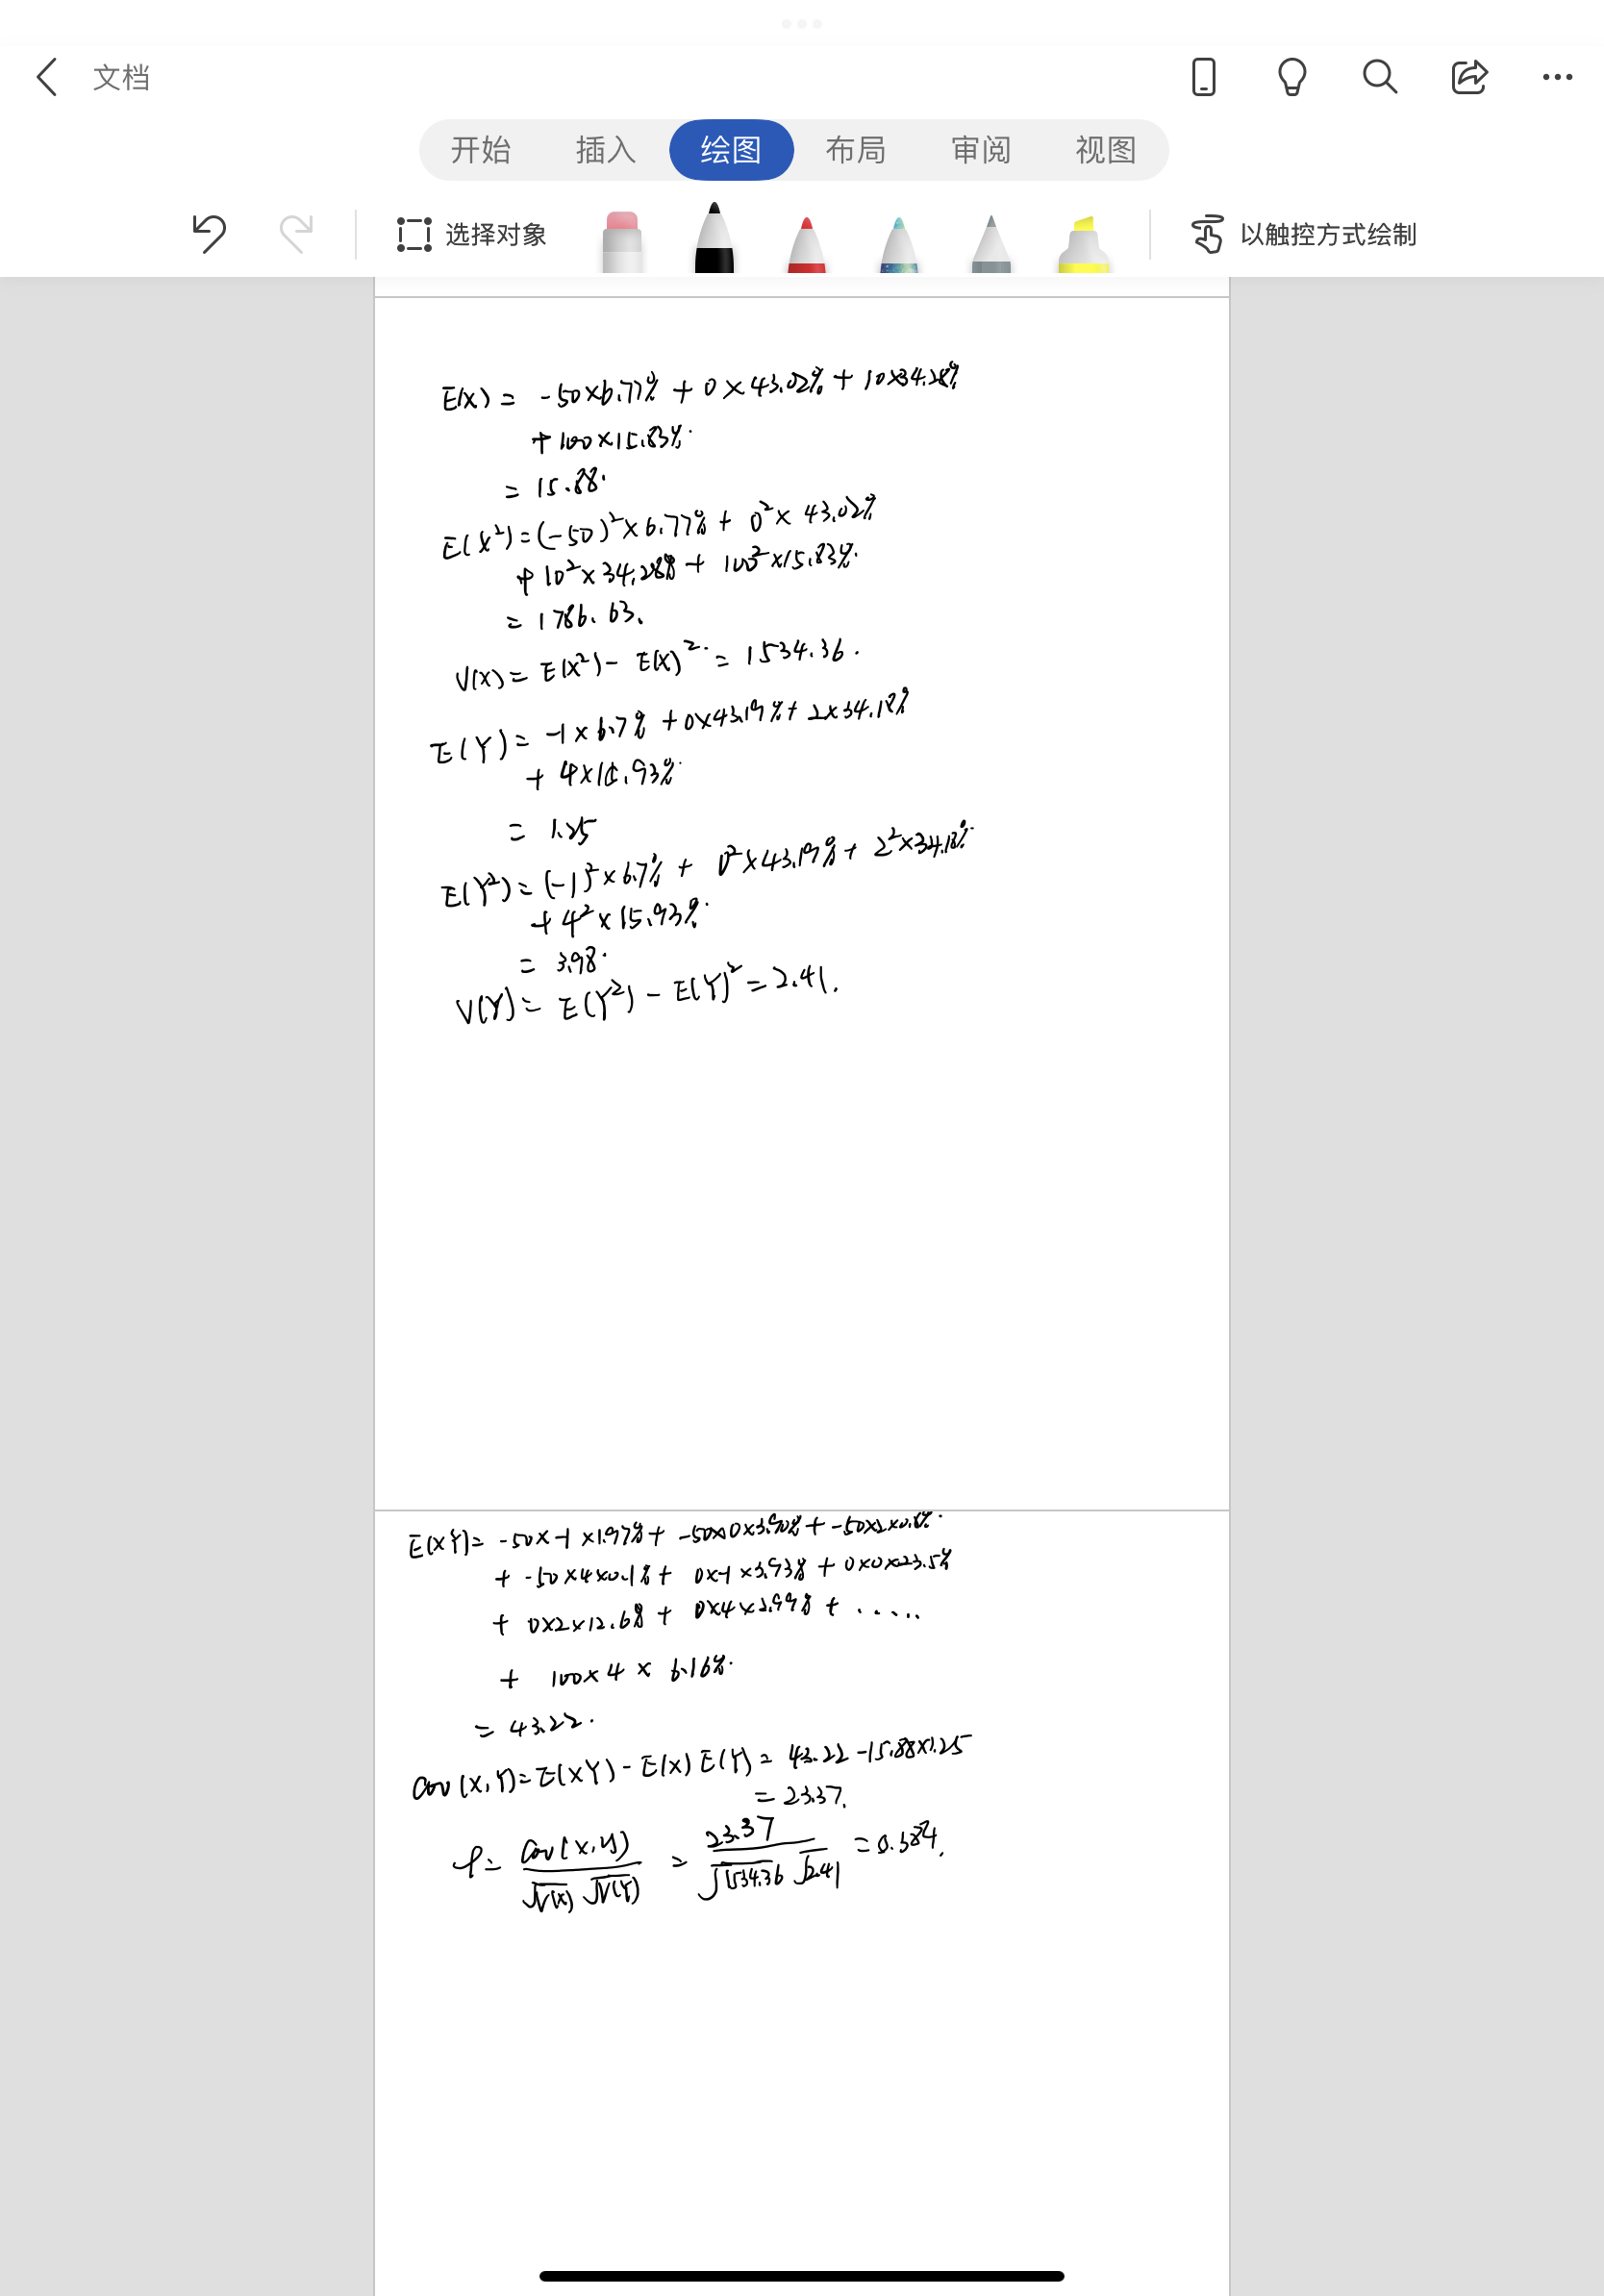 文档
开始 插入 绘图 布局 审阅 视图
选择对象 以触控方式绘制
E(X) = -50×6.77% + 0×43.02% + 10×34.28%
+ 100×15.83%.
= 15.88.
E(X²) = (-50)²×6.77% + 0²× 43.02%
+ 10²×34.28% + 100²×15.83%.
= 1786.63.
V(X) = E(X²) - E(X)² = 1534.36.
E(Y) = -1×6.7% + 0×43.19% + 2×34.18%
+ 4×15.93%.
= 1.25
E(Y²) = (-1)²×6.7% + 0²×43.19% + 2²×34.18%.
+ 4²×15.93%.
= 3.98.
V(Y) = E(Y²) - E(Y)² = 2.41.
E(XY) = -50×-1×1.97% + -50×0×3.90% + -50×2×0.8%.
+ -50×4×0.1% + 0×-1×3.93% + 0×0×23.5%
+ 0×2×12.6% + 0×4×2.99% + .....
+ 100×4×6.16%.
= 43.22.
Cov(X,Y) = E(XY) - E(X)E(Y) = 43.22 - 15.88×1.25
= 23.37.
ρ = Cov(X,Y) / √V(X) √V(Y) = 23.37 / √1534.36 √2.41 = 0.384.